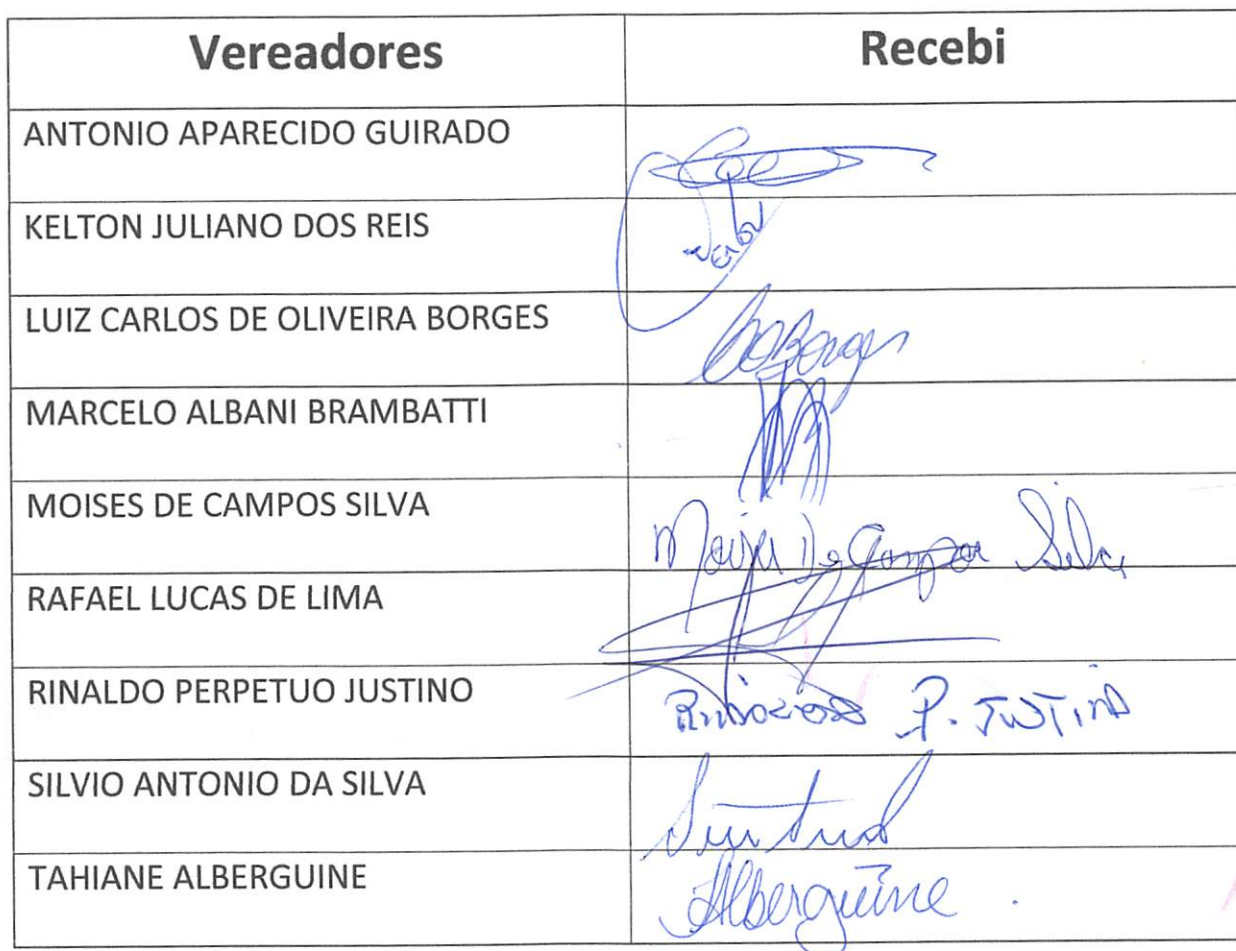 Vereadores Recebi
ANTONIO APARECIDO GUIRADO
KELTON JULIANO DOS REIS
LUIZ CARLOS DE OLIVEIRA BORGES
MARCELO ALBANI BRAMBATTI
MOISES DE CAMPOS SILVA
De Campos Silva
RAFAEL LUCAS DE LIMA
RINALDO PERPETUO JUSTINO
P. JUSTINO
SILVIO ANTONIO DA SILVA
TAHIANE ALBERGUINE
Alberguine